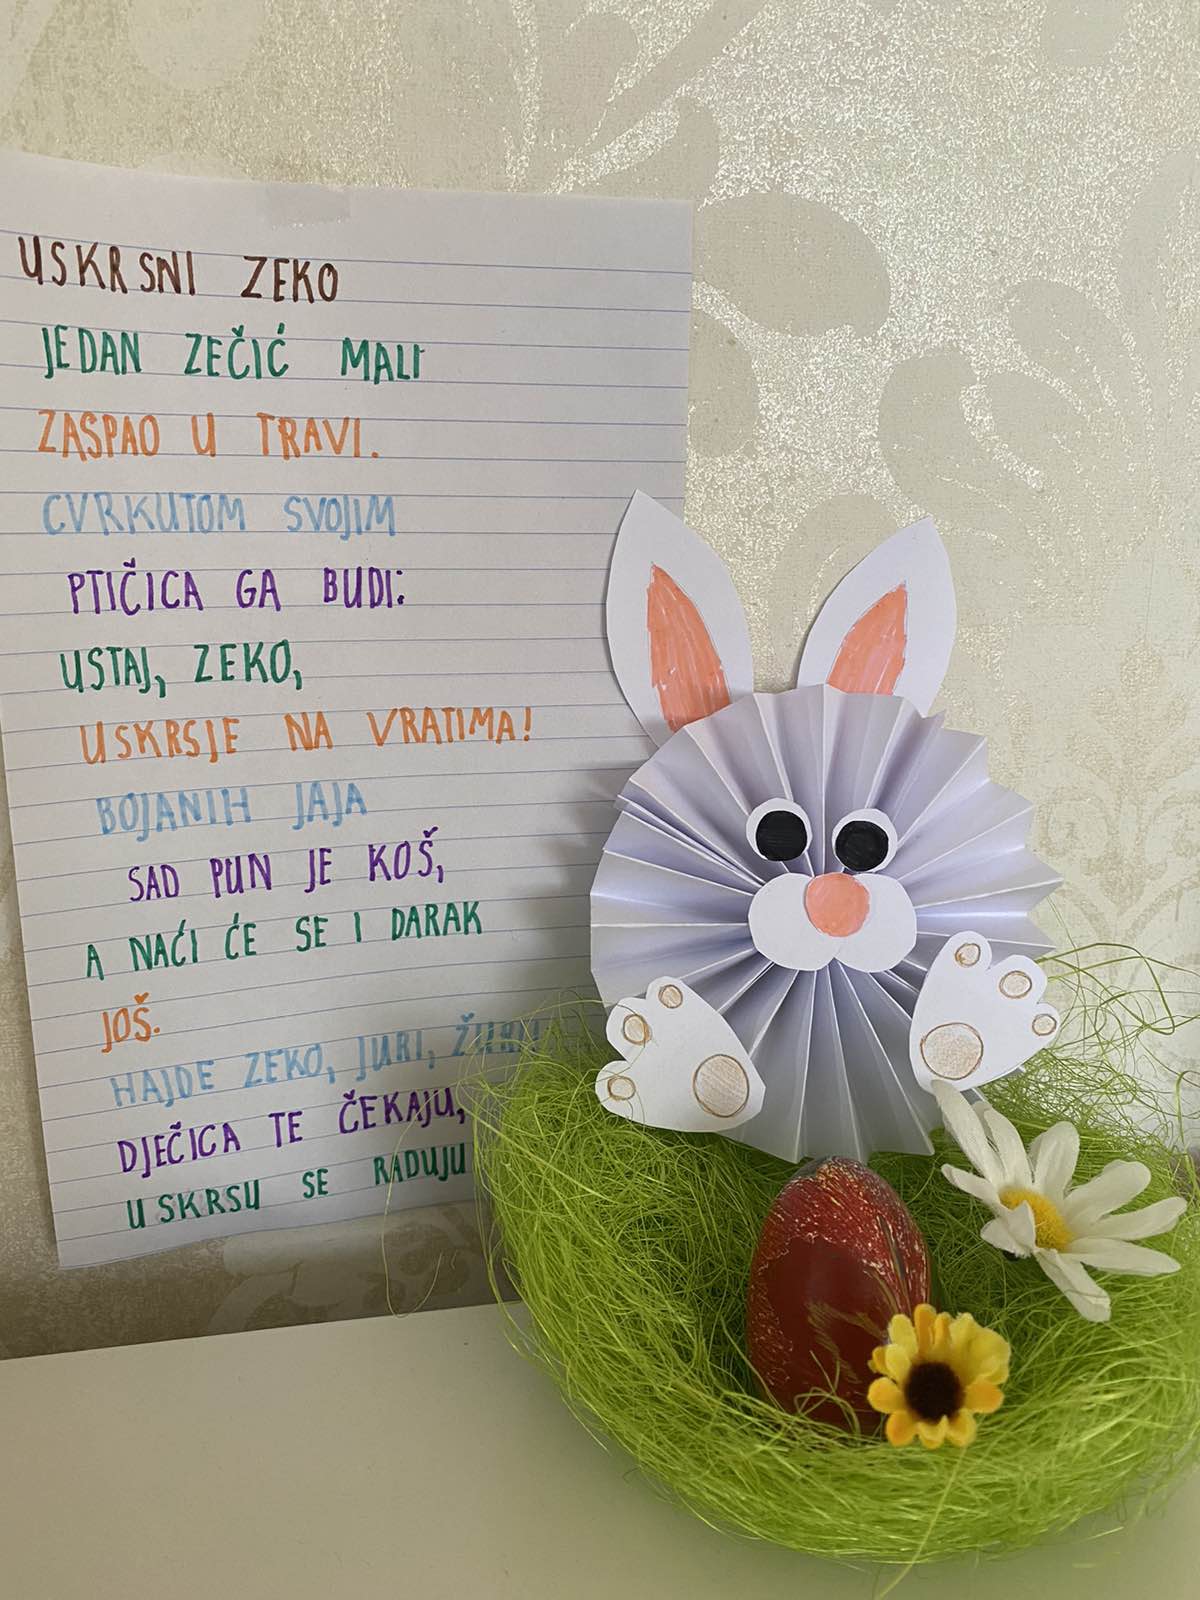 USKRSNI ZEKO
JEDAN ZEČIĆ MALI
ZASPAO U TRAVI.
CVRKUTOM SVOJIM
PTIČICA GA BUDI:
USTAJ, ZEKO,
USKRSJE NA VRATIMA!
BOJANIH JAJA
SAD PUN JE KOŠ,
A NAĆI ĆE SE I DARAK
JOŠ.
HAJDE ZEKO, JURI,
DJEČICA TE ČEKAJU,
USKRSU SE RADUJU